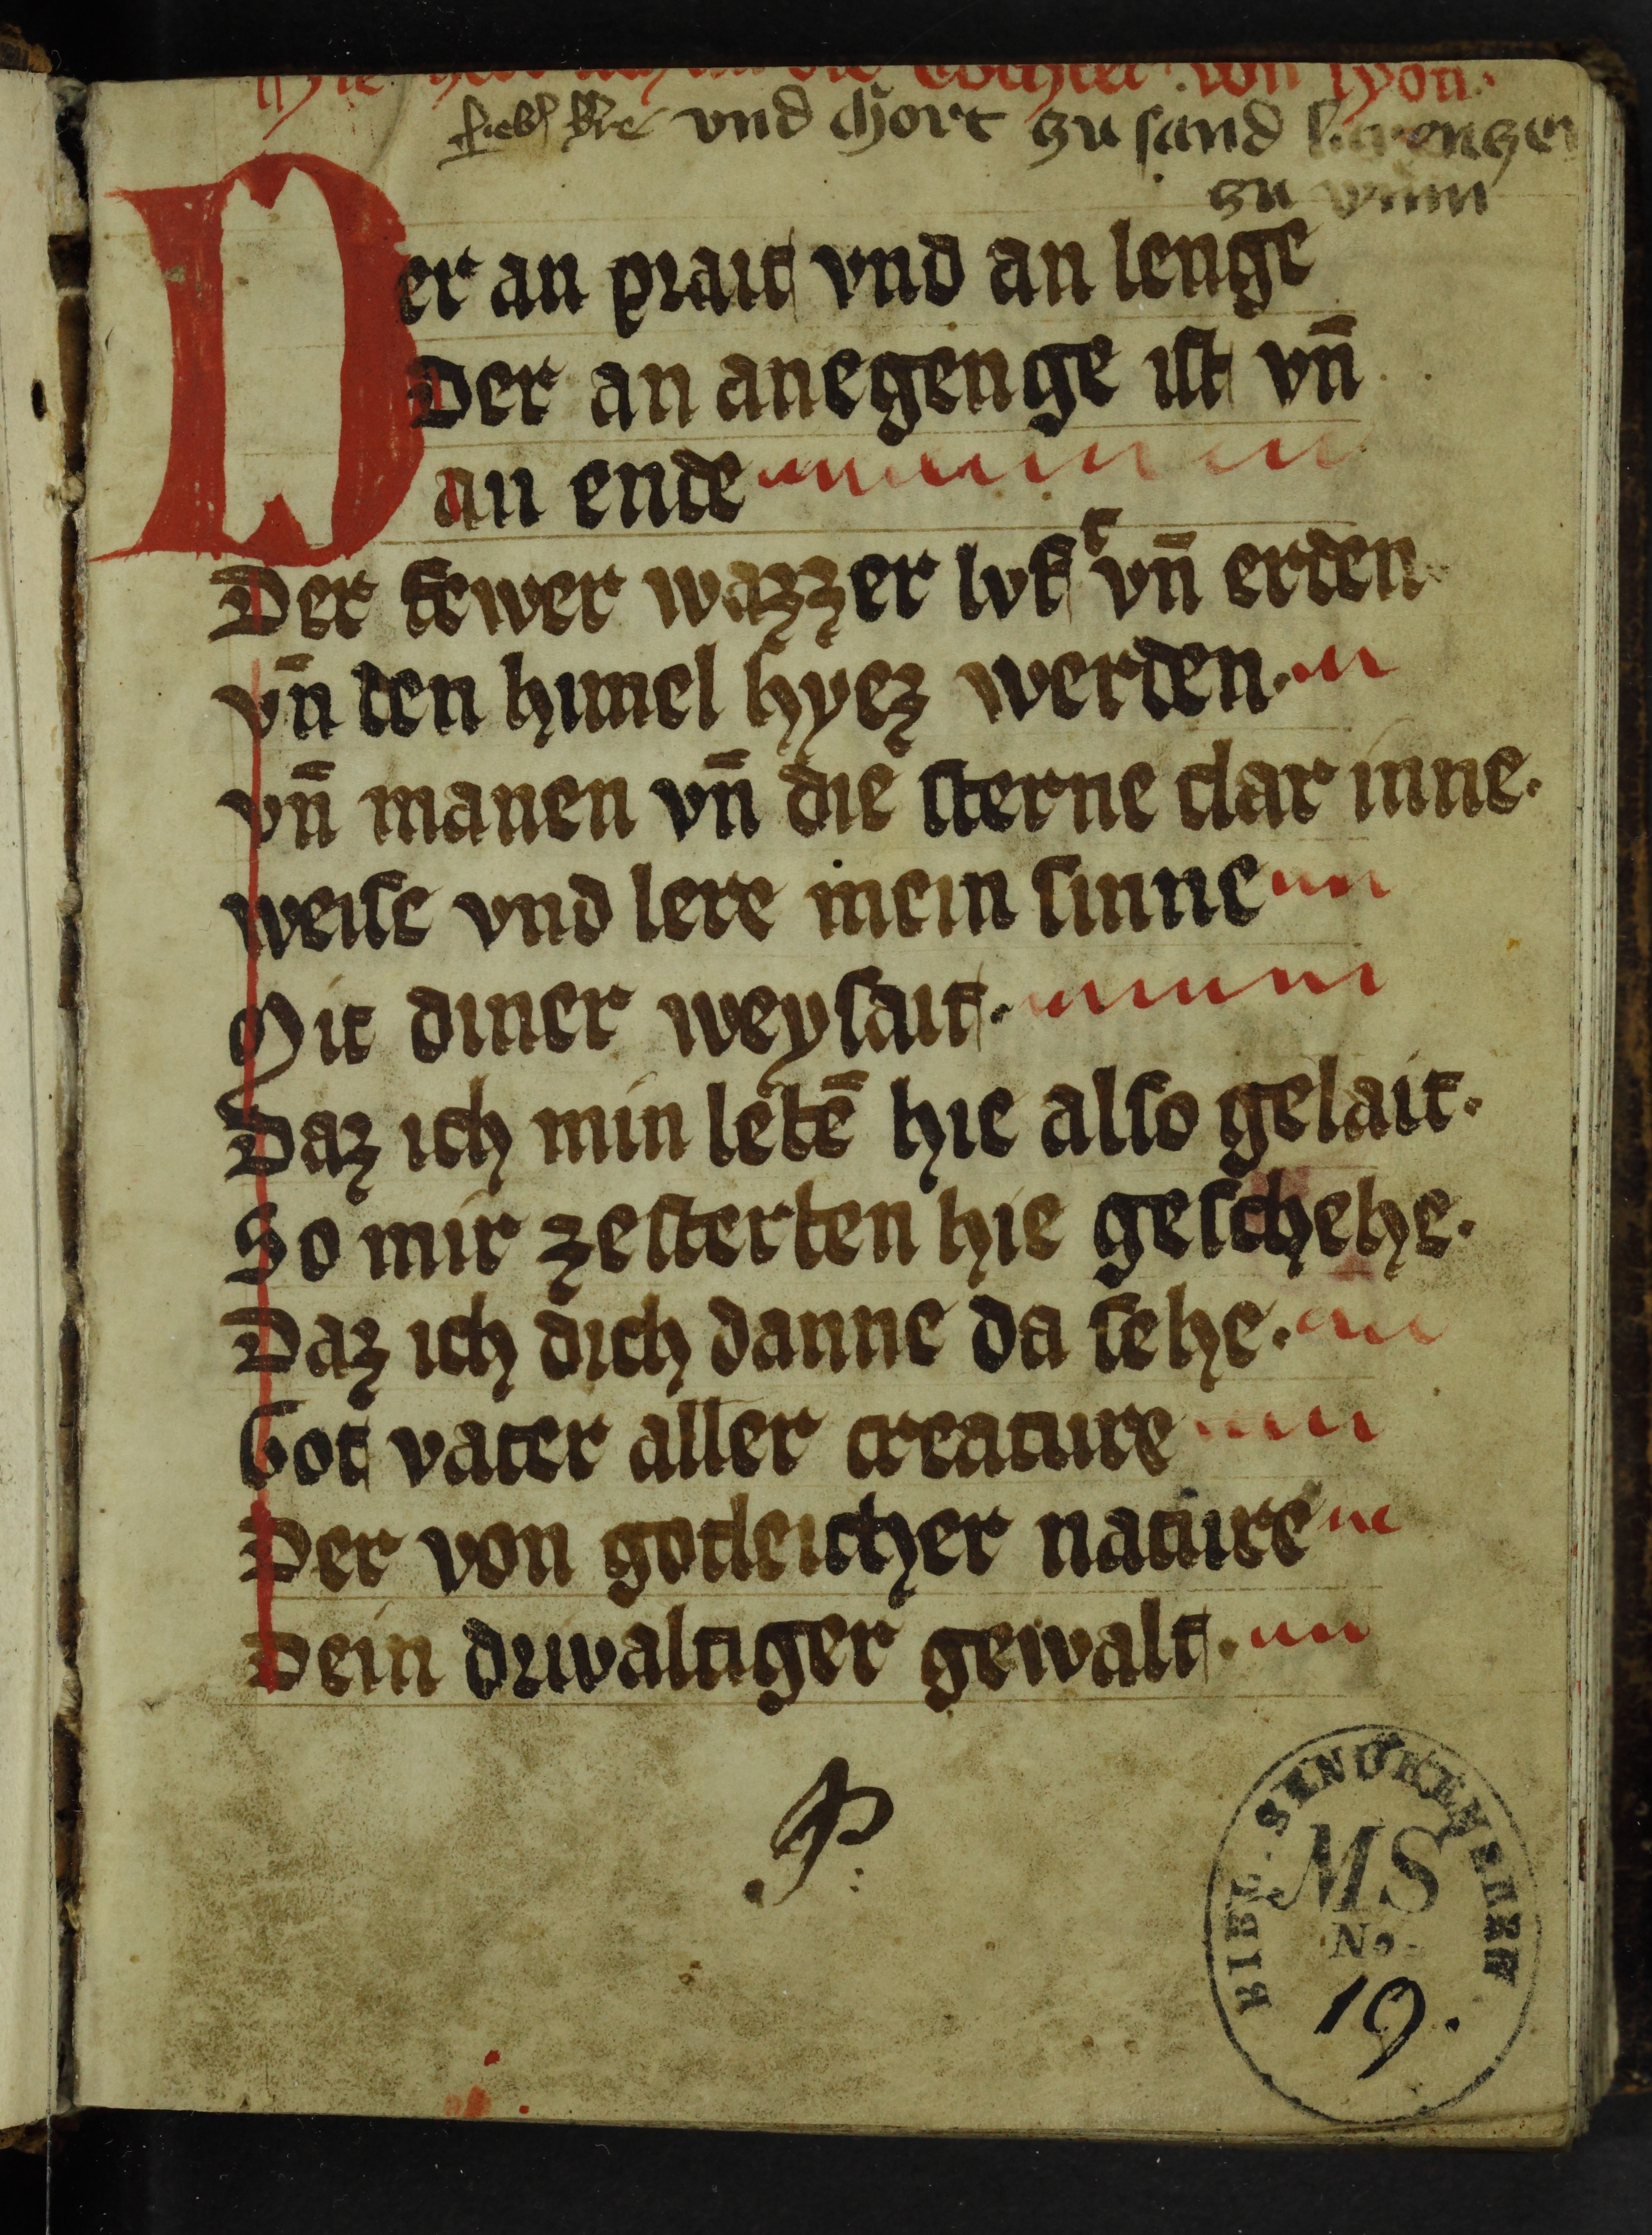 die tochter von syon.
vnd chort zu sand
zu wienn
Der an prait vnd an lenge
Der an anegenge ist vn̄
an ende
Der fewer wazzer lvft vn̄ erden
vn̄ den himel hyez werden.
vn̄ manen vn̄ die sterne clar inne.
weise vnd lere mein sinne
Mit diner weyshait.
Daz ich min lebē hie also gelait.
So mir zesterben hie geschehe.
Daz ich dich danne da sehe.
Got vater aller creature
Der von gotleicher nature
Dein drivaltiger gewalt.
BIBL. SENCKENBERG
MS
No.
19.